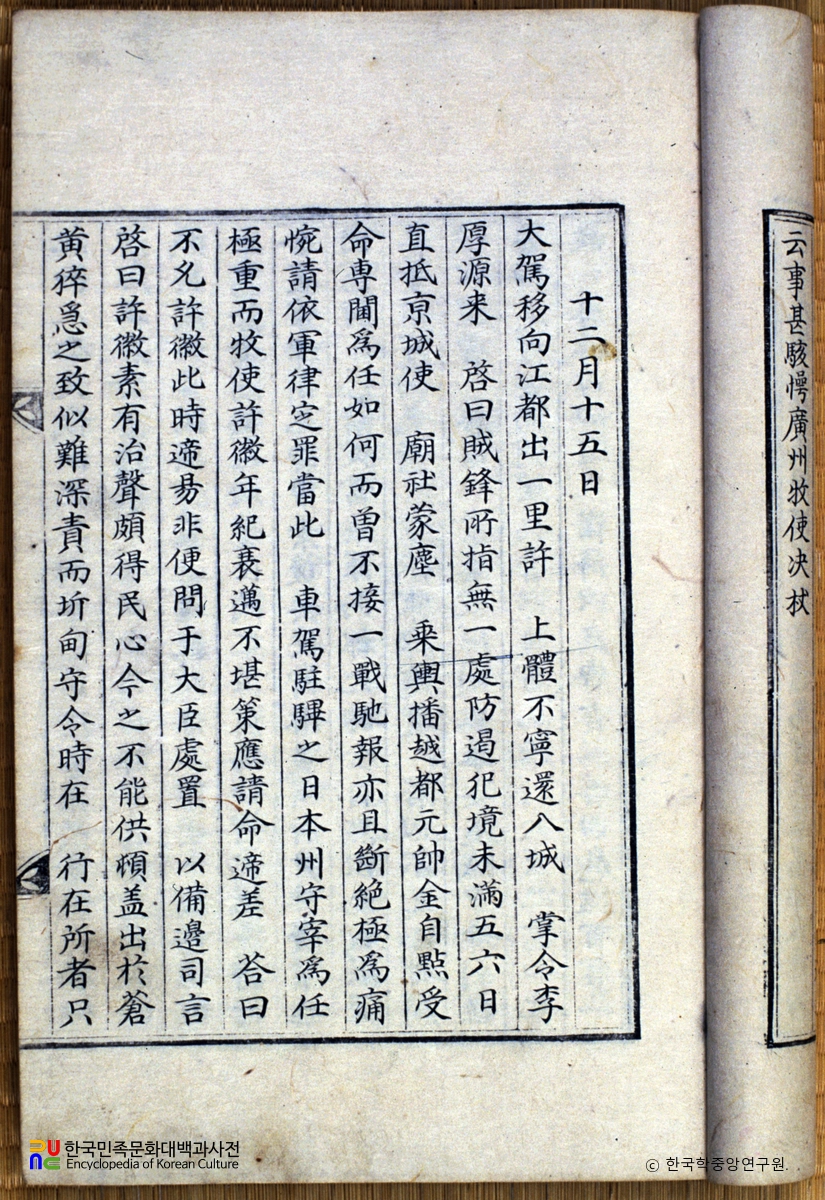 云事甚駭愕廣州牧使决杖
十二月十五日
大駕移向江都出一里許 上體不寧還入城 掌令李
厚源来 啓曰賊鋒所指無一處防遏犯境未滿五六日
直抵亰城使 廟社蒙塵 乗輿播越都元帥金自點受
命專閫爲任如何而曾不接一戰馳報亦且斷絶極爲痛
惋請依軍律定罪當此 車駕駐驆之日本州守宰爲任
極重而牧使許徽年紀衰邁不堪策應請命遆差 荅曰
不允許徽此時遆易非便問于大臣處置 以備邊司言
啓曰許徽素有治聲頗得民心今之不能供頓盖出於蒼
黄猝急之致似難深責而圻甸守令時在 行在所者只
한국민족문화대백과사전
Encyclopedia of Korean Culture
© 한국학중앙연구원.